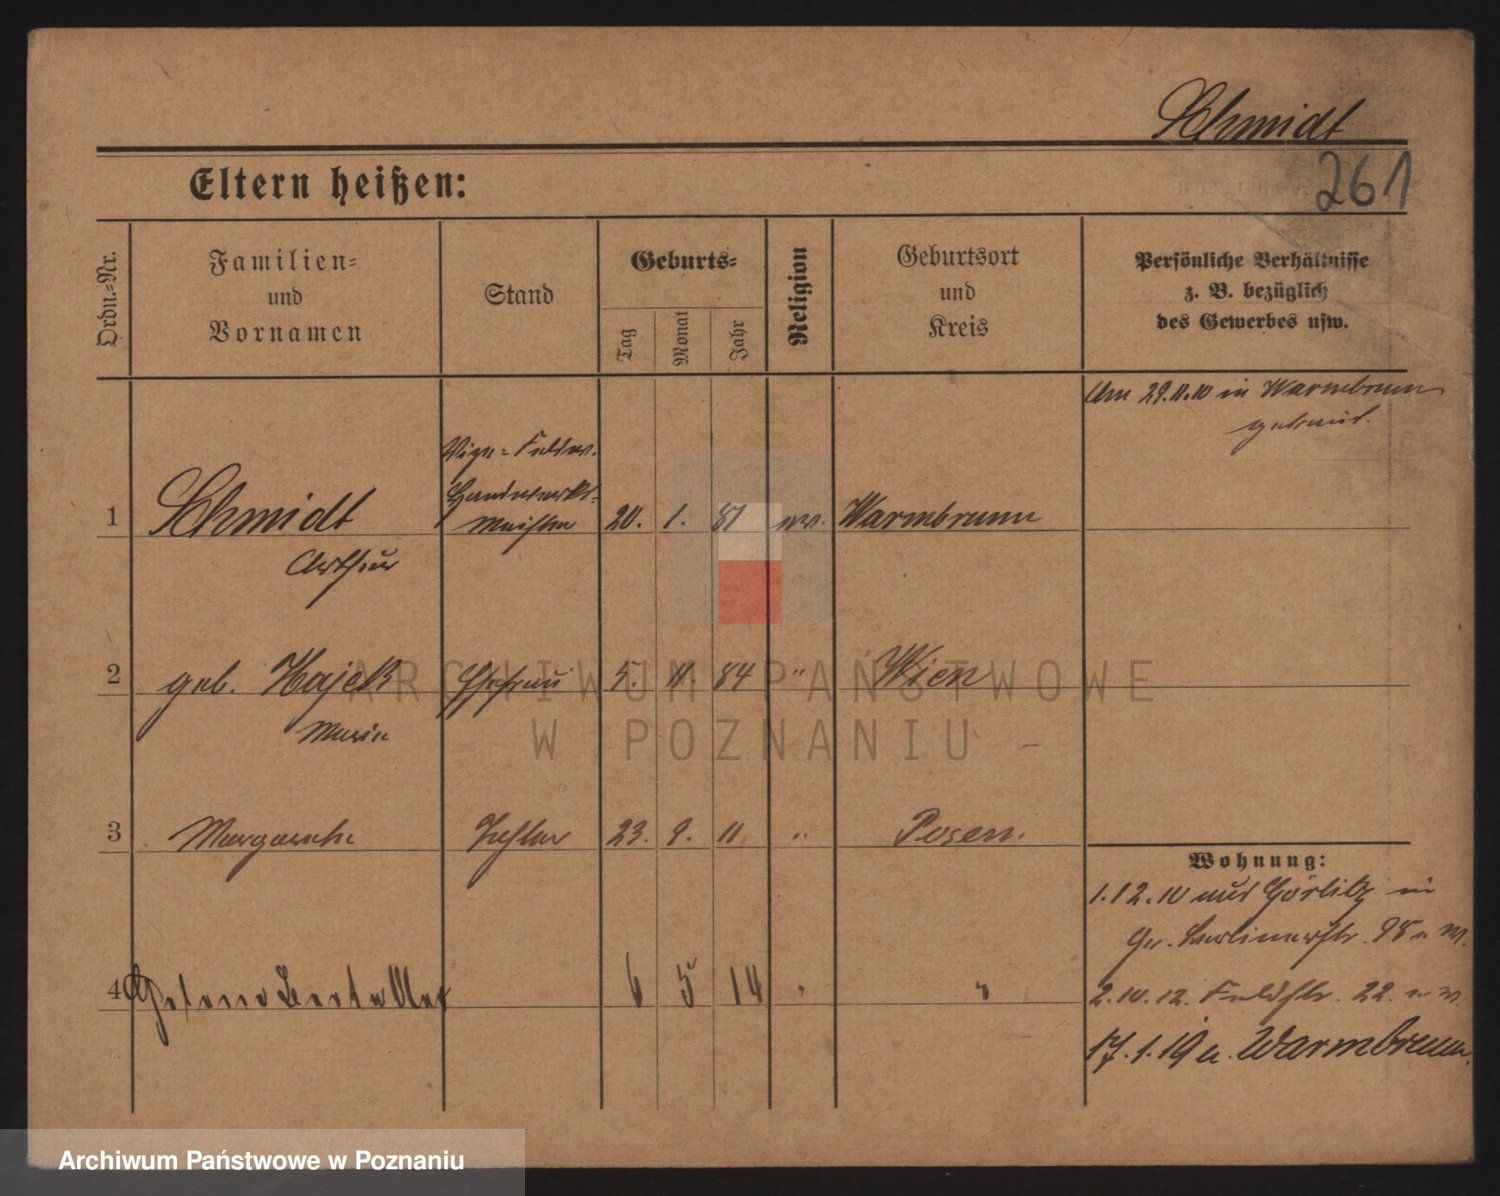 Schmidt
261
Eltern heißen:
Ordn.-Nr.
Familien-
und
Vornamen
Stand
Geburts-
Tag
Monat
Jahr
Religion
Geburtsort
und
Kreis
Persönliche Verhältnisse
z. B. bezüglich
des Gewerbes usw.
Am 29.11.10 in Warmbrunn
getraut.
Vize-Feldw.
Handwerks-
1 Schmidt Meister 20. 1. 81 ev. Warmbrunn
Arthur
2 geb. Hajek Ehefrau 5. 11. 84 " Wien
Marie
3 Margarethe Tochter 23. 9. 11 " Posen.
4 6 5 14 " "
Wohnung:
1.12.10 aus Görlitz in
Gr. Berlinerstr. 98 n. W.
2.10.12. Feldstr. 22. n. W.
17.1.19 n. Warmbrunn.
ARCHIWUM PAŃSTWOWE
W POZNANIU
Archiwum Państwowe w Poznaniu